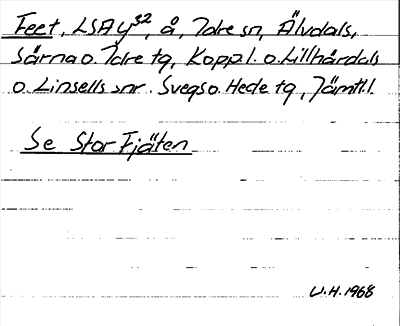 Feet, LSA y³², å, Idre sn, Älvdals,
Särna o. Idre tg, Kopp.l. o. Lillhärdals
o. Linsells snr. Svegs o. Hede tg, Jämtl.l.
Se StorFjäten
W.H. 1968